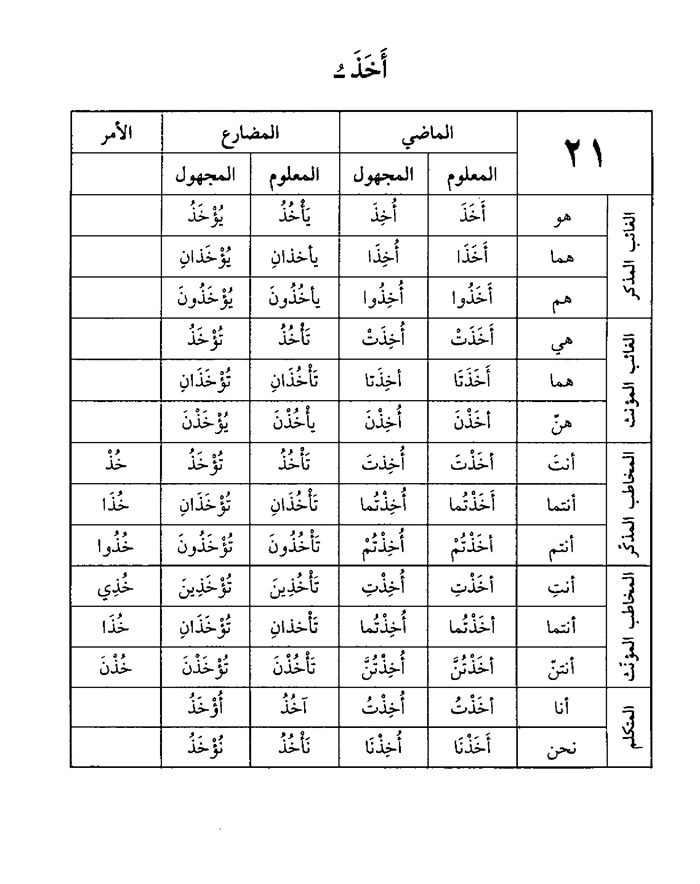 أَخَذَ ـُ
٢١ الماضي المضارع الأمر
المعلوم المجهول المعلوم المجهول
الغائب المذكر
هو أَخَذَ أُخِذَ يَأْخُذُ يُؤْخَذُ
هما أَخَذَا أُخِذَا يأخذانِ يُؤْخَذانِ
هم أَخَذُوا أُخِذُوا يأخُذُونَ يُؤْخَذُونَ
الغائب المؤنث
هي أَخَذَتْ أُخِذَتْ تَأْخُذُ تُؤْخَذُ
هما أَخَذَتَا أخِذَتا تَأْخُذَانِ تُؤْخَذَانِ
هنّ أخَذْنَ أُخِذْنَ يأْخُذْنَ يُؤْخَذْنَ
المخاطب المذكّر
أنتَ أخَذْتَ أُخِذتَ تَأْخُذُ تُؤْخَذُ خُذْ
أنتما أَخَذْتُما أُخِذْتُما تَأْخُذَانِ تُؤْخَذَانِ خُذَا
أنتم أخَذْتُمْ أُخِذْتُمْ تَأْخُذُونَ تُؤْخَذُونَ خُذُوا
المخاطب المؤنّث
أنتِ أخَذْتِ أُخِذْتِ تَأْخُذِينَ تُؤْخَذِينَ خُذِي
أنتما أخَذْتُما أُخِذْتُما تَأْخذانِ تُؤْخَذَانِ خُذَا
أنتنّ أخَذْتُنَّ أُخِذْتُنَّ تَأْخُذْنَ تُؤْخَذْنَ خُذْنَ
المتكلم
أنا أخَذْتُ أُخِذْتُ آخُذُ أُوْخَذُ
نحن أَخَذْنَا أُخِذْنَا نَأْخُذُ نُؤْخَذُ